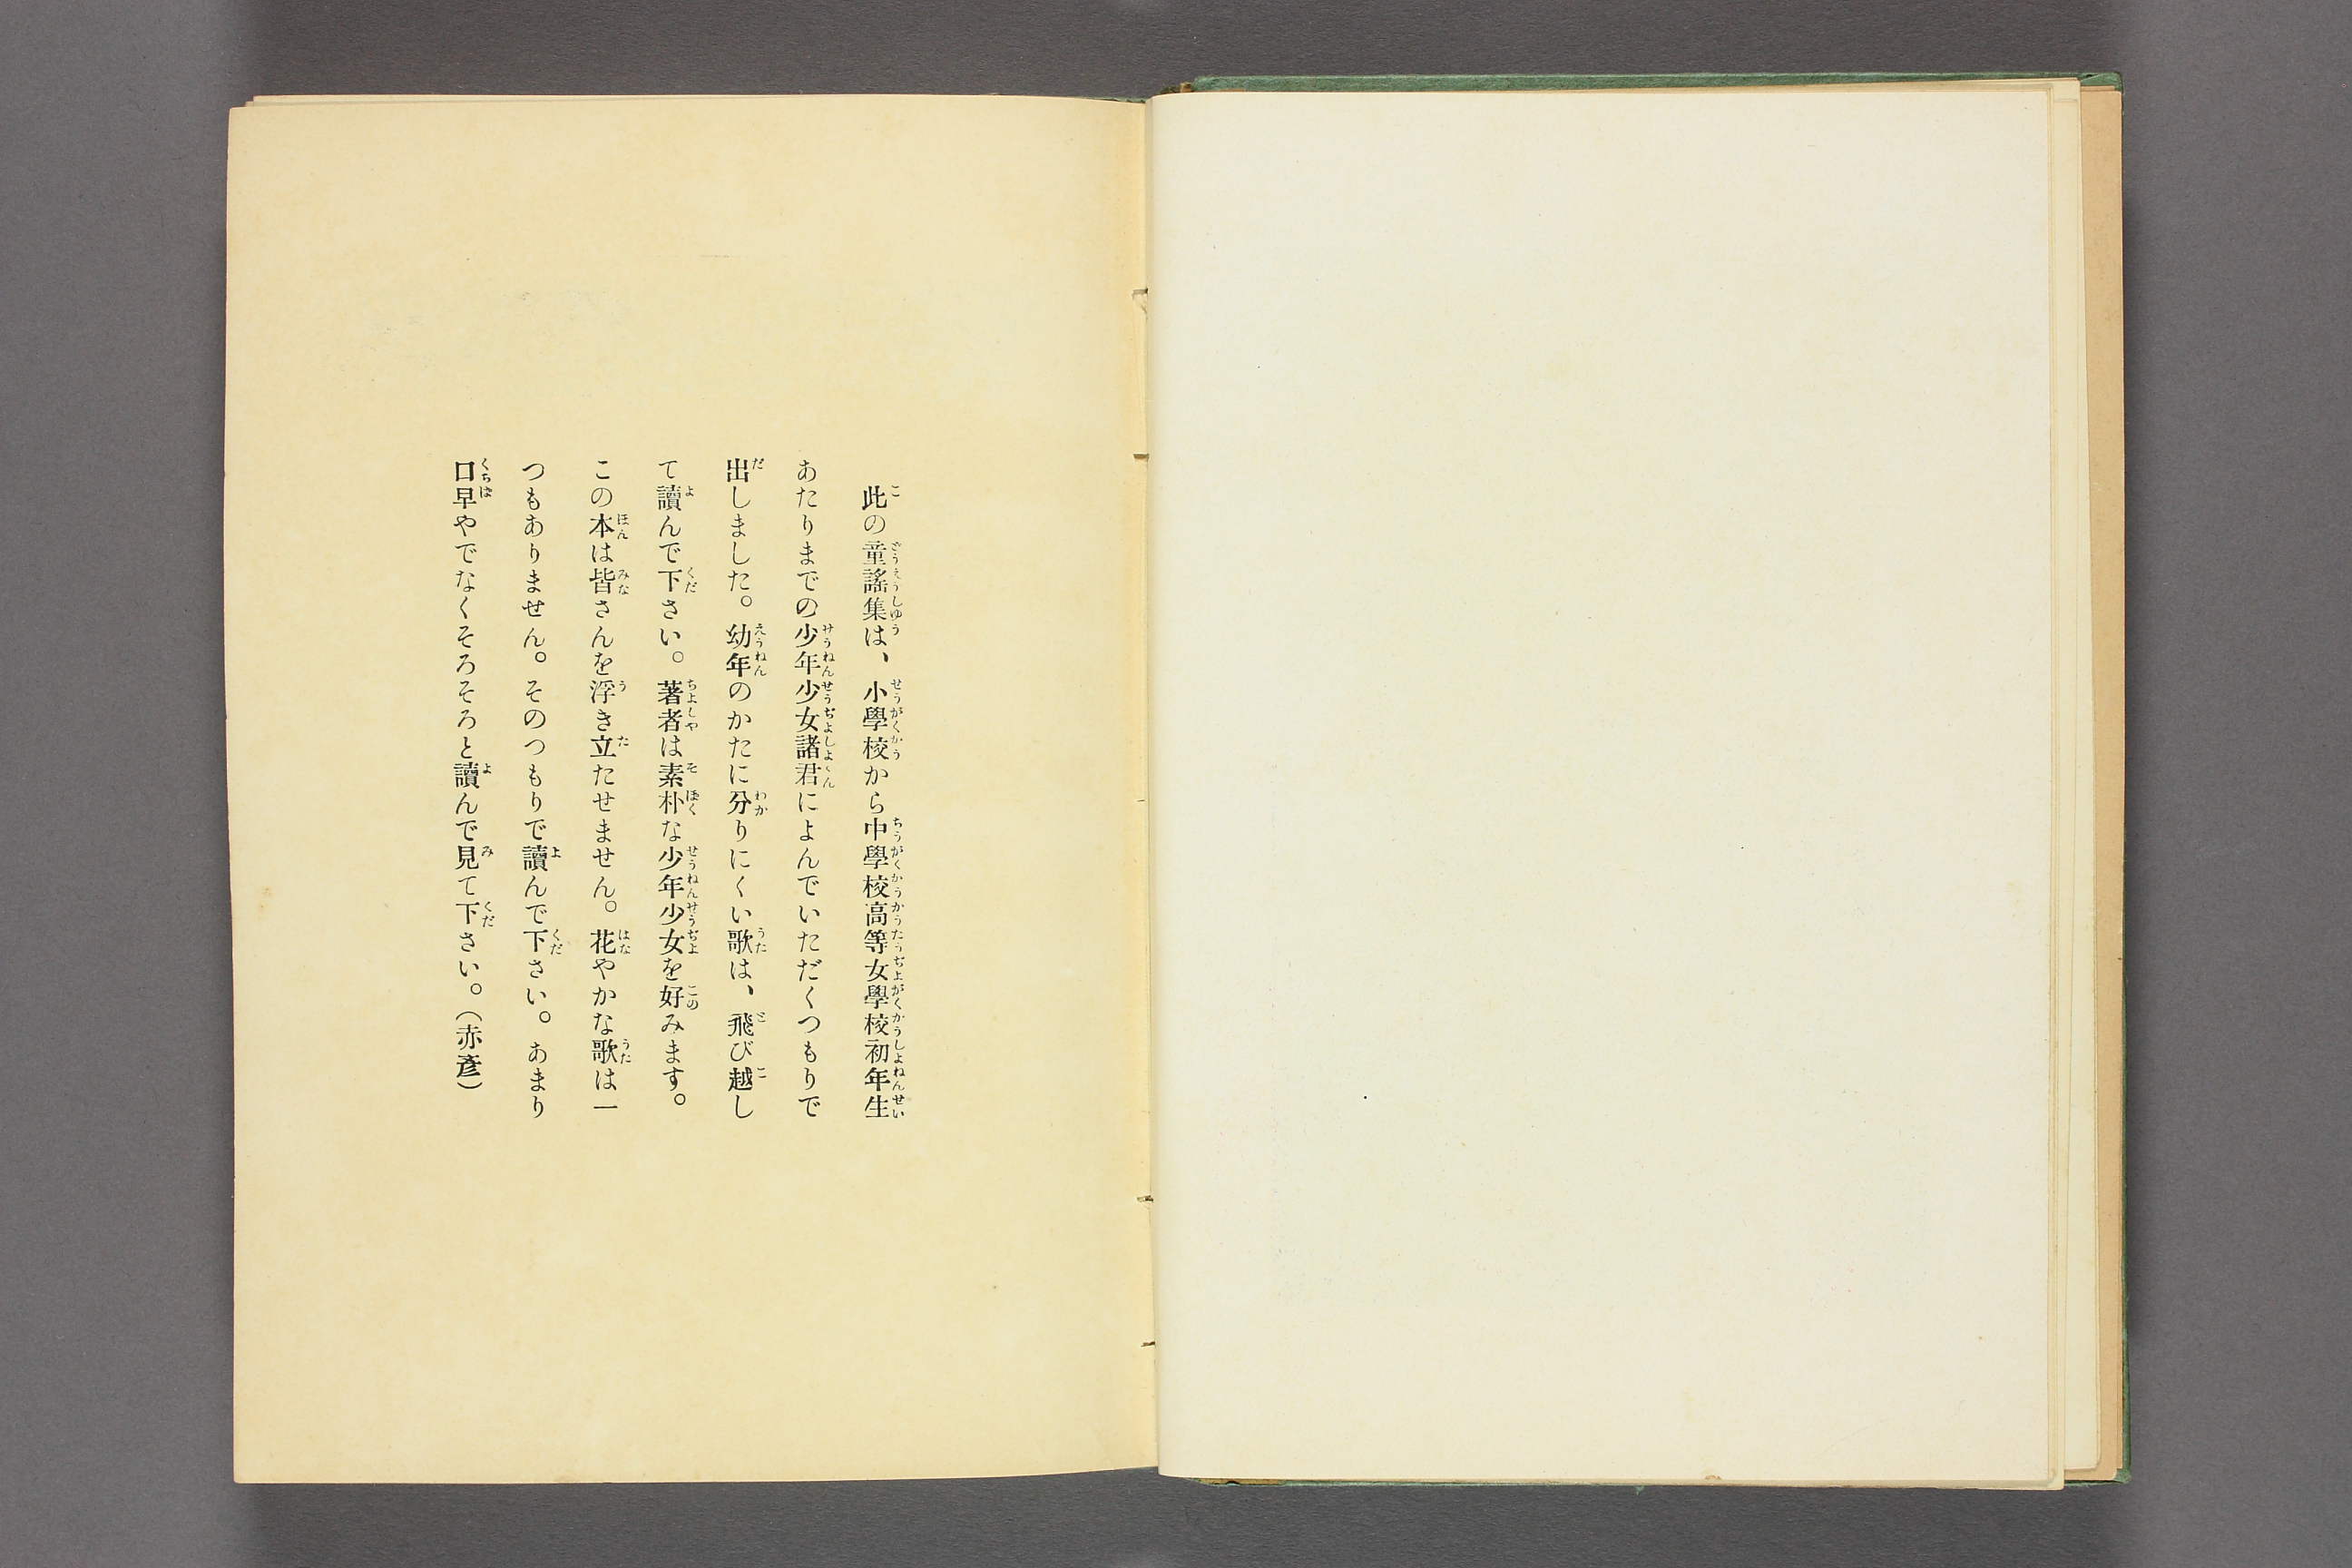 此の童謠集は、小學校から中學校高等女學校初年生
あたりまでの少年少女諸君によんでいただくつもりで
出しました。幼年のかたに分りにくい歌は、飛び越し
て讀んで下さい。著者は素朴な少年少女を好みます。
この本は皆さんを浮き立たせません。花やかな歌は一
つもありません。そのつもりで讀んで下さい。あまり
口早やでなくそろそろと讀んで見て下さい。(赤彥)